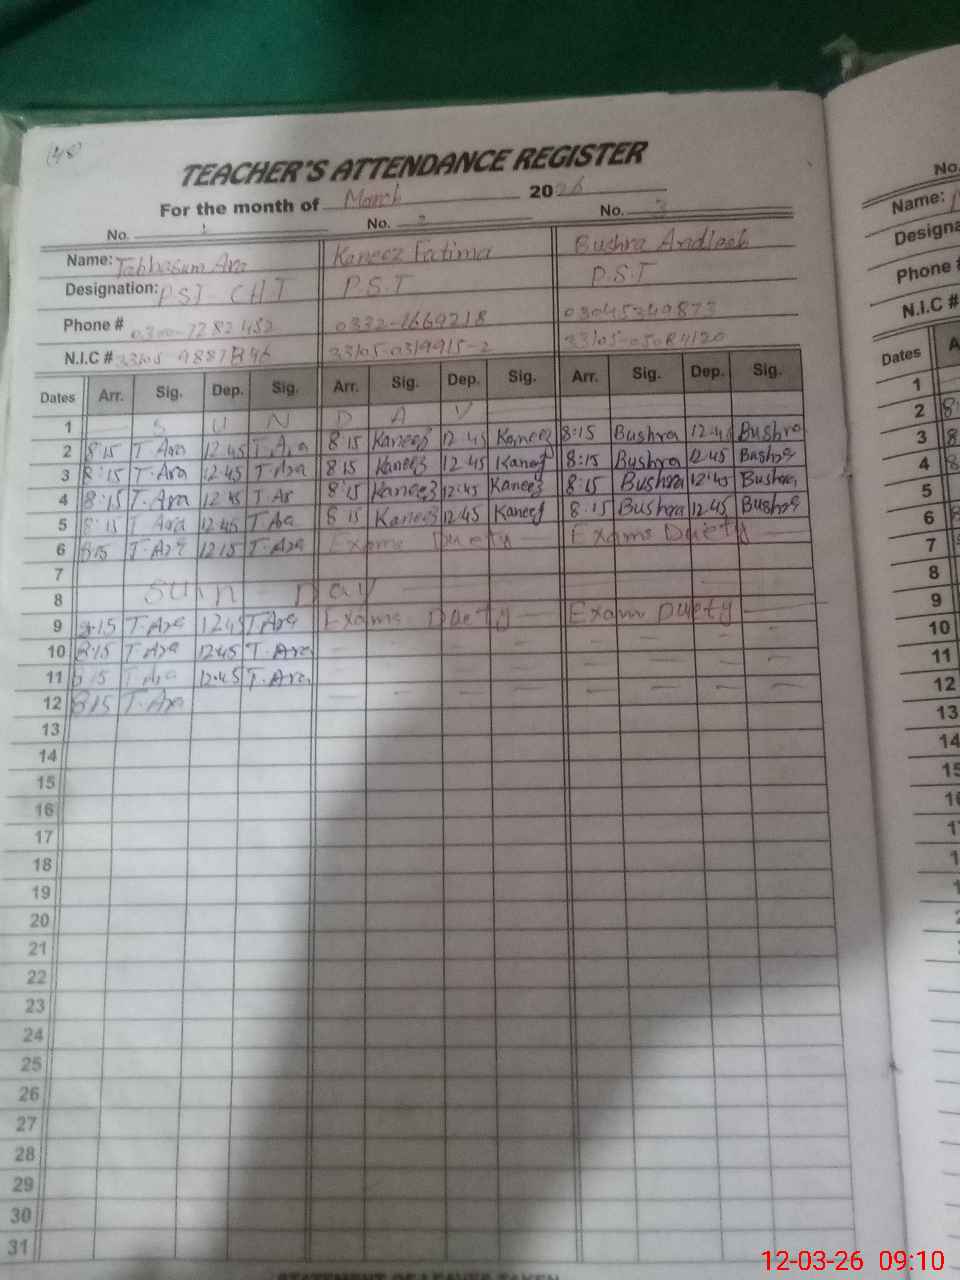 TEACHER'S ATTENDANCE REGISTER
For the month of March 2026
No. 1 No. 2 No. 3
Name: Tabbasum Ara Kaneez Fatima Bushra Andleeb
Designation: PST- CHT P.S.T P.S.T
Phone # 0332-1669218 03045349873
N.I.C # 33105
Dates Arr. Sig. Dep. Sig. Arr. Sig. Dep. Sig. Arr. Sig. Dep. Sig.
1 S U N D A Y
2 8:15 T Ara 12.45 T.Ara 8:15 Kaneez 12:45 Kaneez 8:15 Bushra 12:45 Bushra
3 8:15 T.Ara 12.45 T.Ara 8 15 Kaneez 12 45 Kaneez 8:15 Bushra 12:45 Bushra
4 8:15 T.Ara 12 45 T Ar 8:15 Kaneez 12:45 Kaneez 8:15 Bushra 12:45 Bushra
5 8:15 T Ara 12:45 T Ara 8 15 Kaneez 12.45 Kaneez 8:15 Bushra 12.45 Bushra
6 8:15 T.Ara 12:15 T.Ara Exams Duety Exams Duety
7
8 Sun Day
9 8:15 T.Ara 1245 T.Ara Exams Duety Exam Duety
10 8:15 T.Ara 12.45 T.Ara
11 8 15 T Ara 12.45 T.Ara
12 815 T.Ara
13
14
15
16
17
18
19
20
21
22
23
24
25
26
27
28
29
30
31
No.
Name:
Designa
Phone #
N.I.C #
Dates A
1
2 8:
3
4
5
6
7
8
9
10
11
12
13
14
15
12-03-26 09:10